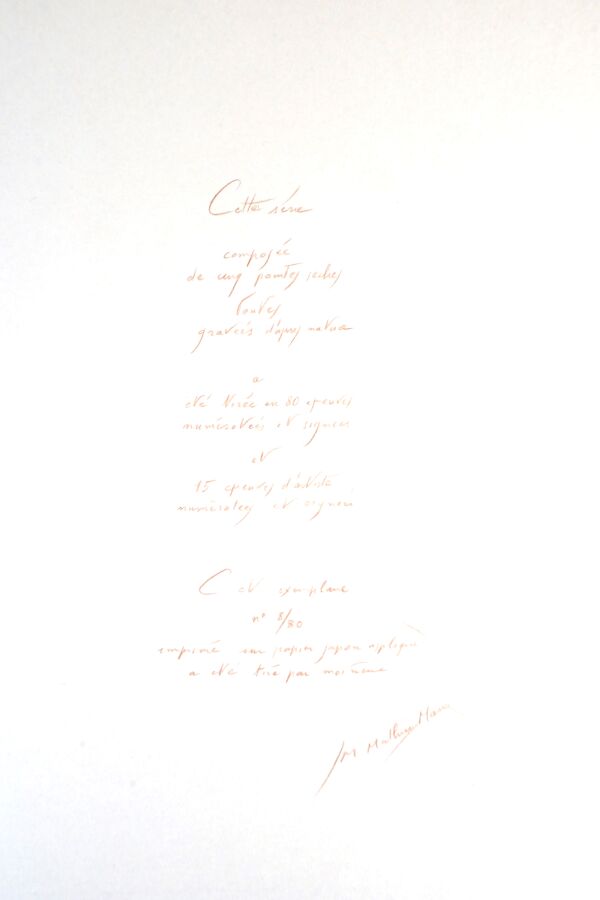 Cette série
composée
de cinq pointes sèches
toutes
gravées d'après nature
a
été tirée en 80 épreuves
numérotées et signées
et
15 épreuves d'artiste
numérotées et signées
Cet exemplaire
n° 8/80
imprimé sur papier japon appliqué
a été tiré par moi même
JM Mathieux Marie